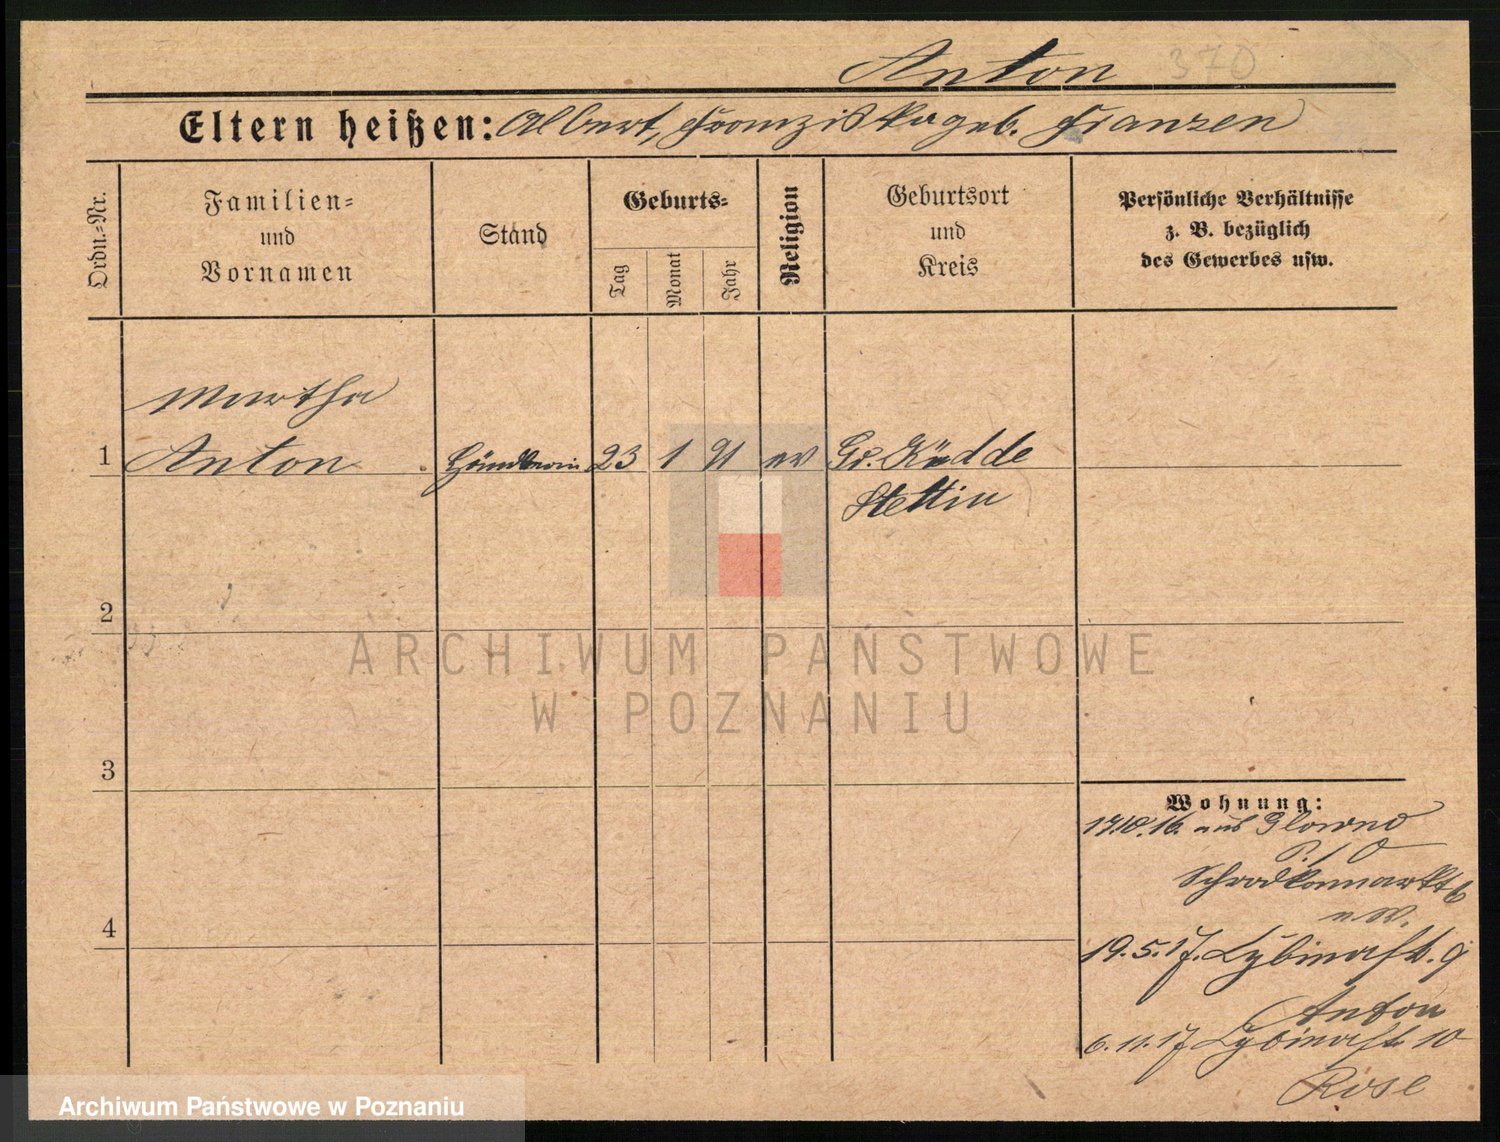 Anton 370
Eltern heißen: Albert, Franziska geb. Franzen
Ordn.-Nr.
Familien-
und
Vornamen
Stand
Geburts-
Tag
Monat
Jahr
Religion
Geburtsort
und
Kreis
Persönliche Verhältnisse
z. B. bezüglich
des Gewerbes usw.
Martha
1 Anton 23 1 91 ev Gr. Küdde
Stettin
2
ARCHIWUM PAŃSTWOWE
W POZNANIU
3
Wohnung:
17.10.16. aus Glowno
Schrodkamarkt 6
4
19.5.17. Cybinastr. 9
Anton
6.11.17 Cybinastr. 10
Rose
Archiwum Państwowe w Poznaniu